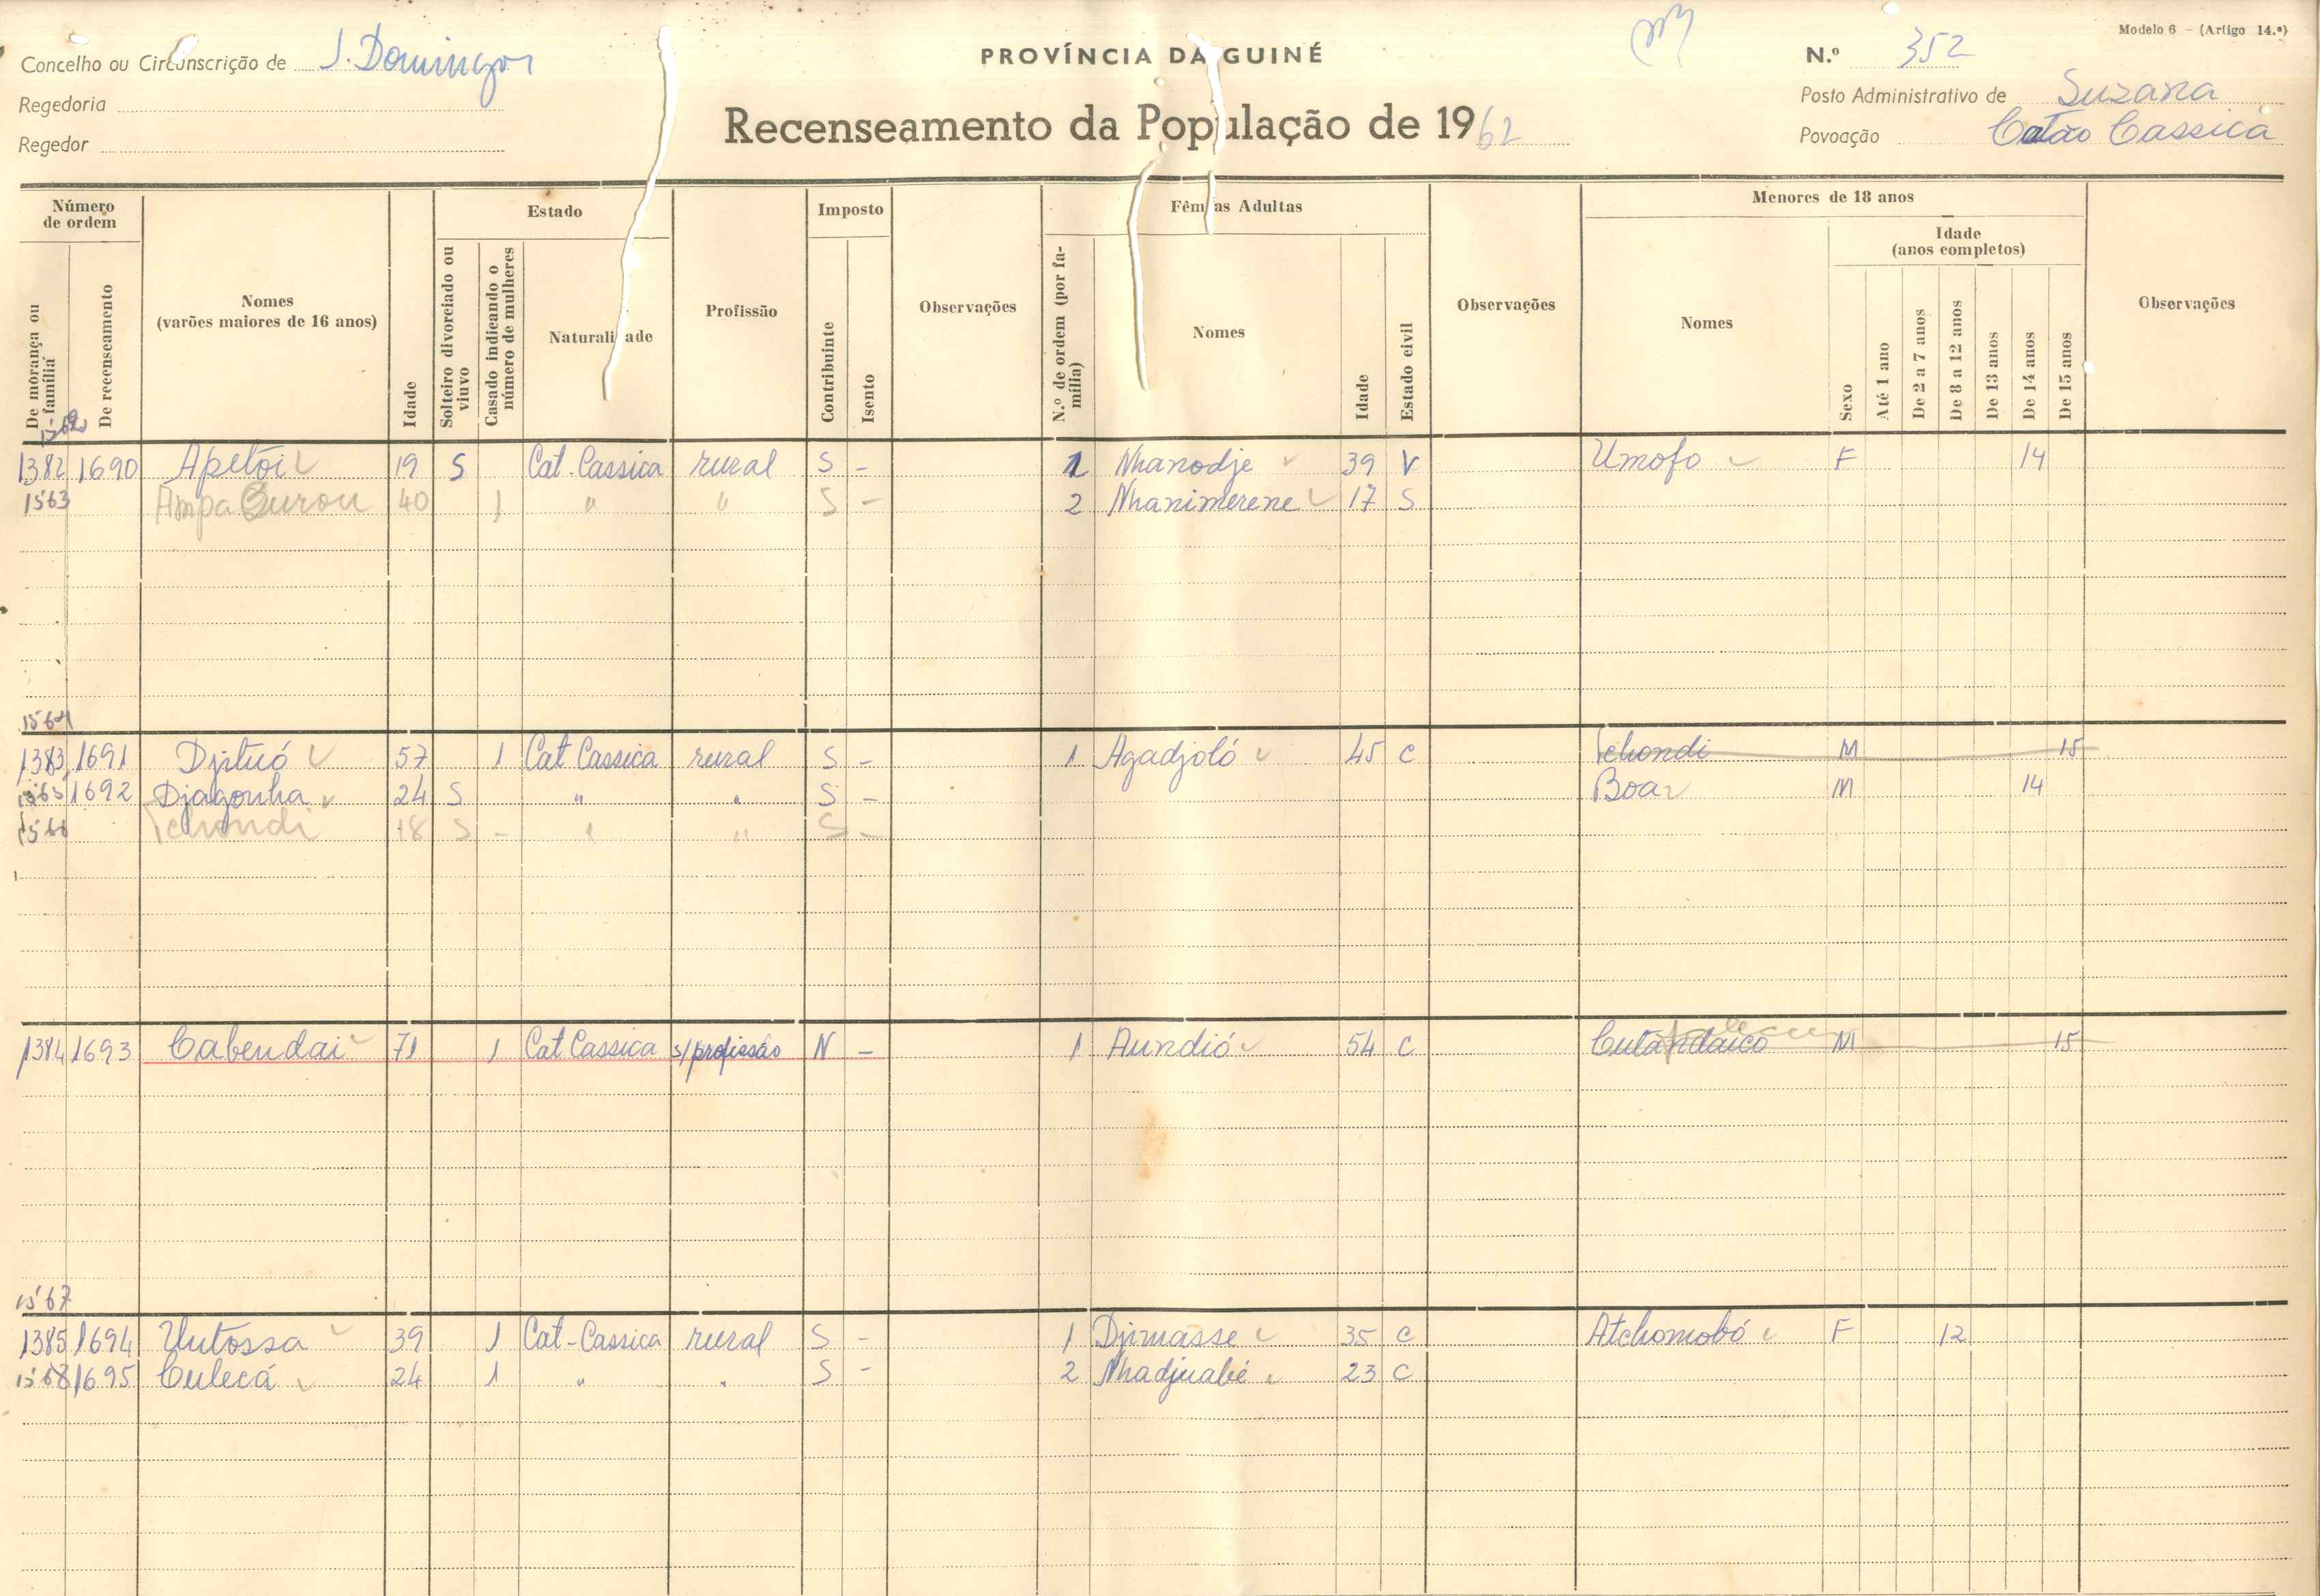 Modelo 6 - (Artigo 14.º)
Concelho ou Circunscrição de S. Domingos
PROVÍNCIA DA GUINÉ
N.º 352
Regedoria
Posto Administrativo de Suzana
Regedor
Recenseamento da População de 1962
Povoação Catão Cassica
Número de ordem
De morança ou família
De recenseamento
Nomes (varões maiores de 16 anos)
Idade
Estado
Solteiro divorciado ou viuvo
Casado indicando o número de mulheres
Naturalidade
Profissão
Imposto
Contribuinte
Isento
Observações
Fêmeas Adultas
N.º de ordem (por família)
Nomes
Idade
Estado civil
Observações
Menores de 18 anos
Nomes
Sexo
Idade (anos completos)
Até 1 ano
De 2 a 7 anos
De 8 a 12 anos
De 13 anos
De 14 anos
De 15 anos
Observações
1382 1690 Apetôi 19 S Cat. Cassica rural S - 1 Nhanodje 39 V Umofo F 14
1563 Ampa Gurou 40 1 " " S - 2 Nhanimerene 17 S
1564
1383 1691 Djituó 57 1 Cat Cassica rural S - 1 Agadjoló 45 C Tchondi M 15
1565 1692 Djagonha 24 S " " S - Boa M 14
1566 Tchondi 18 S - " " S -
1384 1693 Cabendai 71 1 Cat Cassica s/profissão N - 1 Aundió 54 C Cutandaico M 15
1567
1385 1694 Untossa 39 1 Cat-Cassica rural S - 1 Djimasse 35 C Atchomobó F 12
1568 1695 Culecá 24 1 " " S - 2 Nhadjuabé 23 C